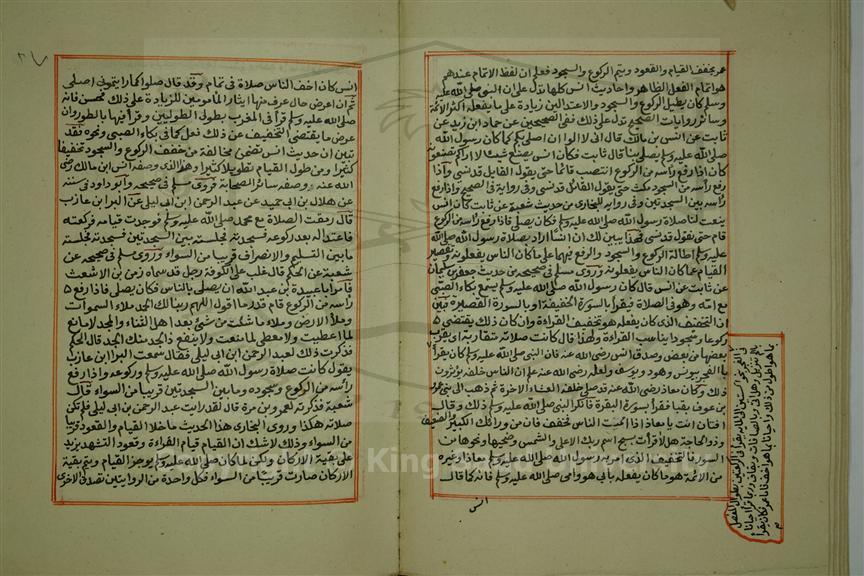 عمر يخفف القيام والقعود ويتم الركوع والسجود فعلم ان لفظ الاتمام عندهم
هو اتمام الفعل الظاهر واحاديث انس كلها تدل على ان النبي صلى الله عليه
وسلم كان يطيل الركوع والسجود والاعتدالين زيادة على ما يفعله اكثر الائمة
وسائر روايات الصحيح تدل على ذلك ففي الصحيحين عن حماد ابن زيد عن
ثابت عن انس بن مالك قال اني لا الوا ان اصلي بكم كما كان رسول الله
صلى الله عليه وسلم يصلي بنا قال ثابت فكان انس يصنع شيئا لا اراكم تصنعونه
كان اذا رفع راسه من الركوع انتصب قائما حتى يقول القايل قد نسي واذا
رفع راسه من السجود مكث حتى يقول القائل قد نسي وفي رواية في الصحيح واذا رفع
راسه بين السجدتين وفي رواية للبخاري من حديث شعبة عن ثابت كان انس
ينعت لنا صلاة رسول الله صلى الله عليه وسلم فكان يصلي فاذا رفع راسه من الركوع
قام حتى نقول قد نسي فهذا يبين لك ان انسا اراد بصلاة رسول الله صلى الله
عليه وسلم اطالة الركوع والسجود والرفع فيهما على ما كان الناس يفعلونه وتقصير
القيام عما كان الناس يفعلونه وروى مسلم في صحيحه من حديث جعفر بن سليمان
عن ثابت عن انس قال كان رسول الله صلى الله عليه وسلم يسمع بكاء الصبي
مع امه وهو في الصلاة فيقرأ بالسورة الخفيفة او بالسورة القصيرة فبين
ان التخفيف الذي كان يفعله هو تخفيف القراءة وان كان ذلك يقتضي
ركوعا وسجودا يناسب القراءة ولهذا قال كانت صلاته متقاربة اي يقرب
بعضها من بعض وصدق انس رضي الله عنه فان النبي صلى الله عليه وسلم كان يقرأ
بيونس وهود ويوسف ولعله خلفه الناس خلفه يؤثرون
ذلك وكان معاذ رضي الله عنه قد صلى خلفه العشاء الاخرة ثم ذهب الى بني عمرو
بن عوف بقبا فقرأ بسورة البقرة فانكر النبي صلى الله عليه وسلم ذلك وقال
افتان انت يا معاذ اذا اممت الناس فخفف فان من ورائك الكبير والضعيف
وذو الحاجة هلا قرأت سبح اسم ربك الاعلى والشمس وضحيها ونحوها من
السور فالتخفيف الذي امر به رسول الله صلى الله عليه وسلم معاذا وغيره
من الائمة هو ما كان يفعله بابي هو وامي صلى الله عليه وسلم فانه كما قال
انس
انس كان اخف الناس صلاة في تمام وقد قال صلوا كما رايتموني اصلي
ثم ان اعرض حال عرف منها ايثار المامومين للزيادة على ذلك فحسن فانه
صلى الله عليه وسلم قرأ في المغرب بطولى الطوليين وقرأ فيها بالطور وان
عرض ما يقتضي التخفيف عن ذلك فعل كما في بكاء الصبي ونحوه فقد
تبين ان حديث انس تضمن مخالفة من خفف الركوع والسجود تخفيفا
كثيرا ومن طول القيام تطويلا كثيرا وهو الذي وصفه انس ابن مالك رضي
الله عنه ووصفه سائر الصحابة فروى مسلم في صحيحه وابو داود في سننه
عن هلال بن ابي حميد عن عبد الرحمن ابن ابي ليلى عن البرا ابن عازب
قال رمقت الصلاة مع محمد صلى الله عليه وسلم فوجدت قيامه فركعته
فاعتداله بعد ركوعه فسجدته فجلسته بين السجدتين فسجدته فجلسته
ما بين التسليم والانصراف قريبا من السواء وروى مسلم في صحيحه عن
شعبة عن الحكم قال غلب على الكوفة رجل قد سماه زمن بن الاشعث
فامر ابا عبيدة بن عبد الله ان يصلي بالناس فكان يصلي فاذا رفع
راسه من الركوع قام قدر ما اقول اللهم ربنا لك الحمد ملء السموات
وملأ الارض وملاء ما شئت من شئ بعد اهل الثناء والمجد لا مانع
لما اعطيت ولا معطي لما منعت ولا ينفع ذا الجد منك الجد قال الحكم
فذكرت ذلك لعبد الرحمن ابن ابي ليلى فقال سمعت البرا ابن عازب
يقول كانت صلاة رسول الله صلى الله عليه وسلم وركوعه واذا رفع
رائسه من الركوع وسجوده وما بين السجدتين قريبا من السواء قال
شعبة فذكرته لعمرو بن مرة قال لقد رايت عبد الرحمن بن ابي ليلى فلم تكن
صلاته هكذا وروى البخاري هذا الحديث ما خلا القيام والقعود قريبا
من السواء وذلك لا شك ان القيام قيام القراءة وقعود التشهد يزيد
على بقية الاركان ولكن لما كان صلى الله عليه وسلم يوجز القيام ويتم بقية
الاركان صارت قريبا من السواء فكل واحدة من الروايتين تصدق الاخرى